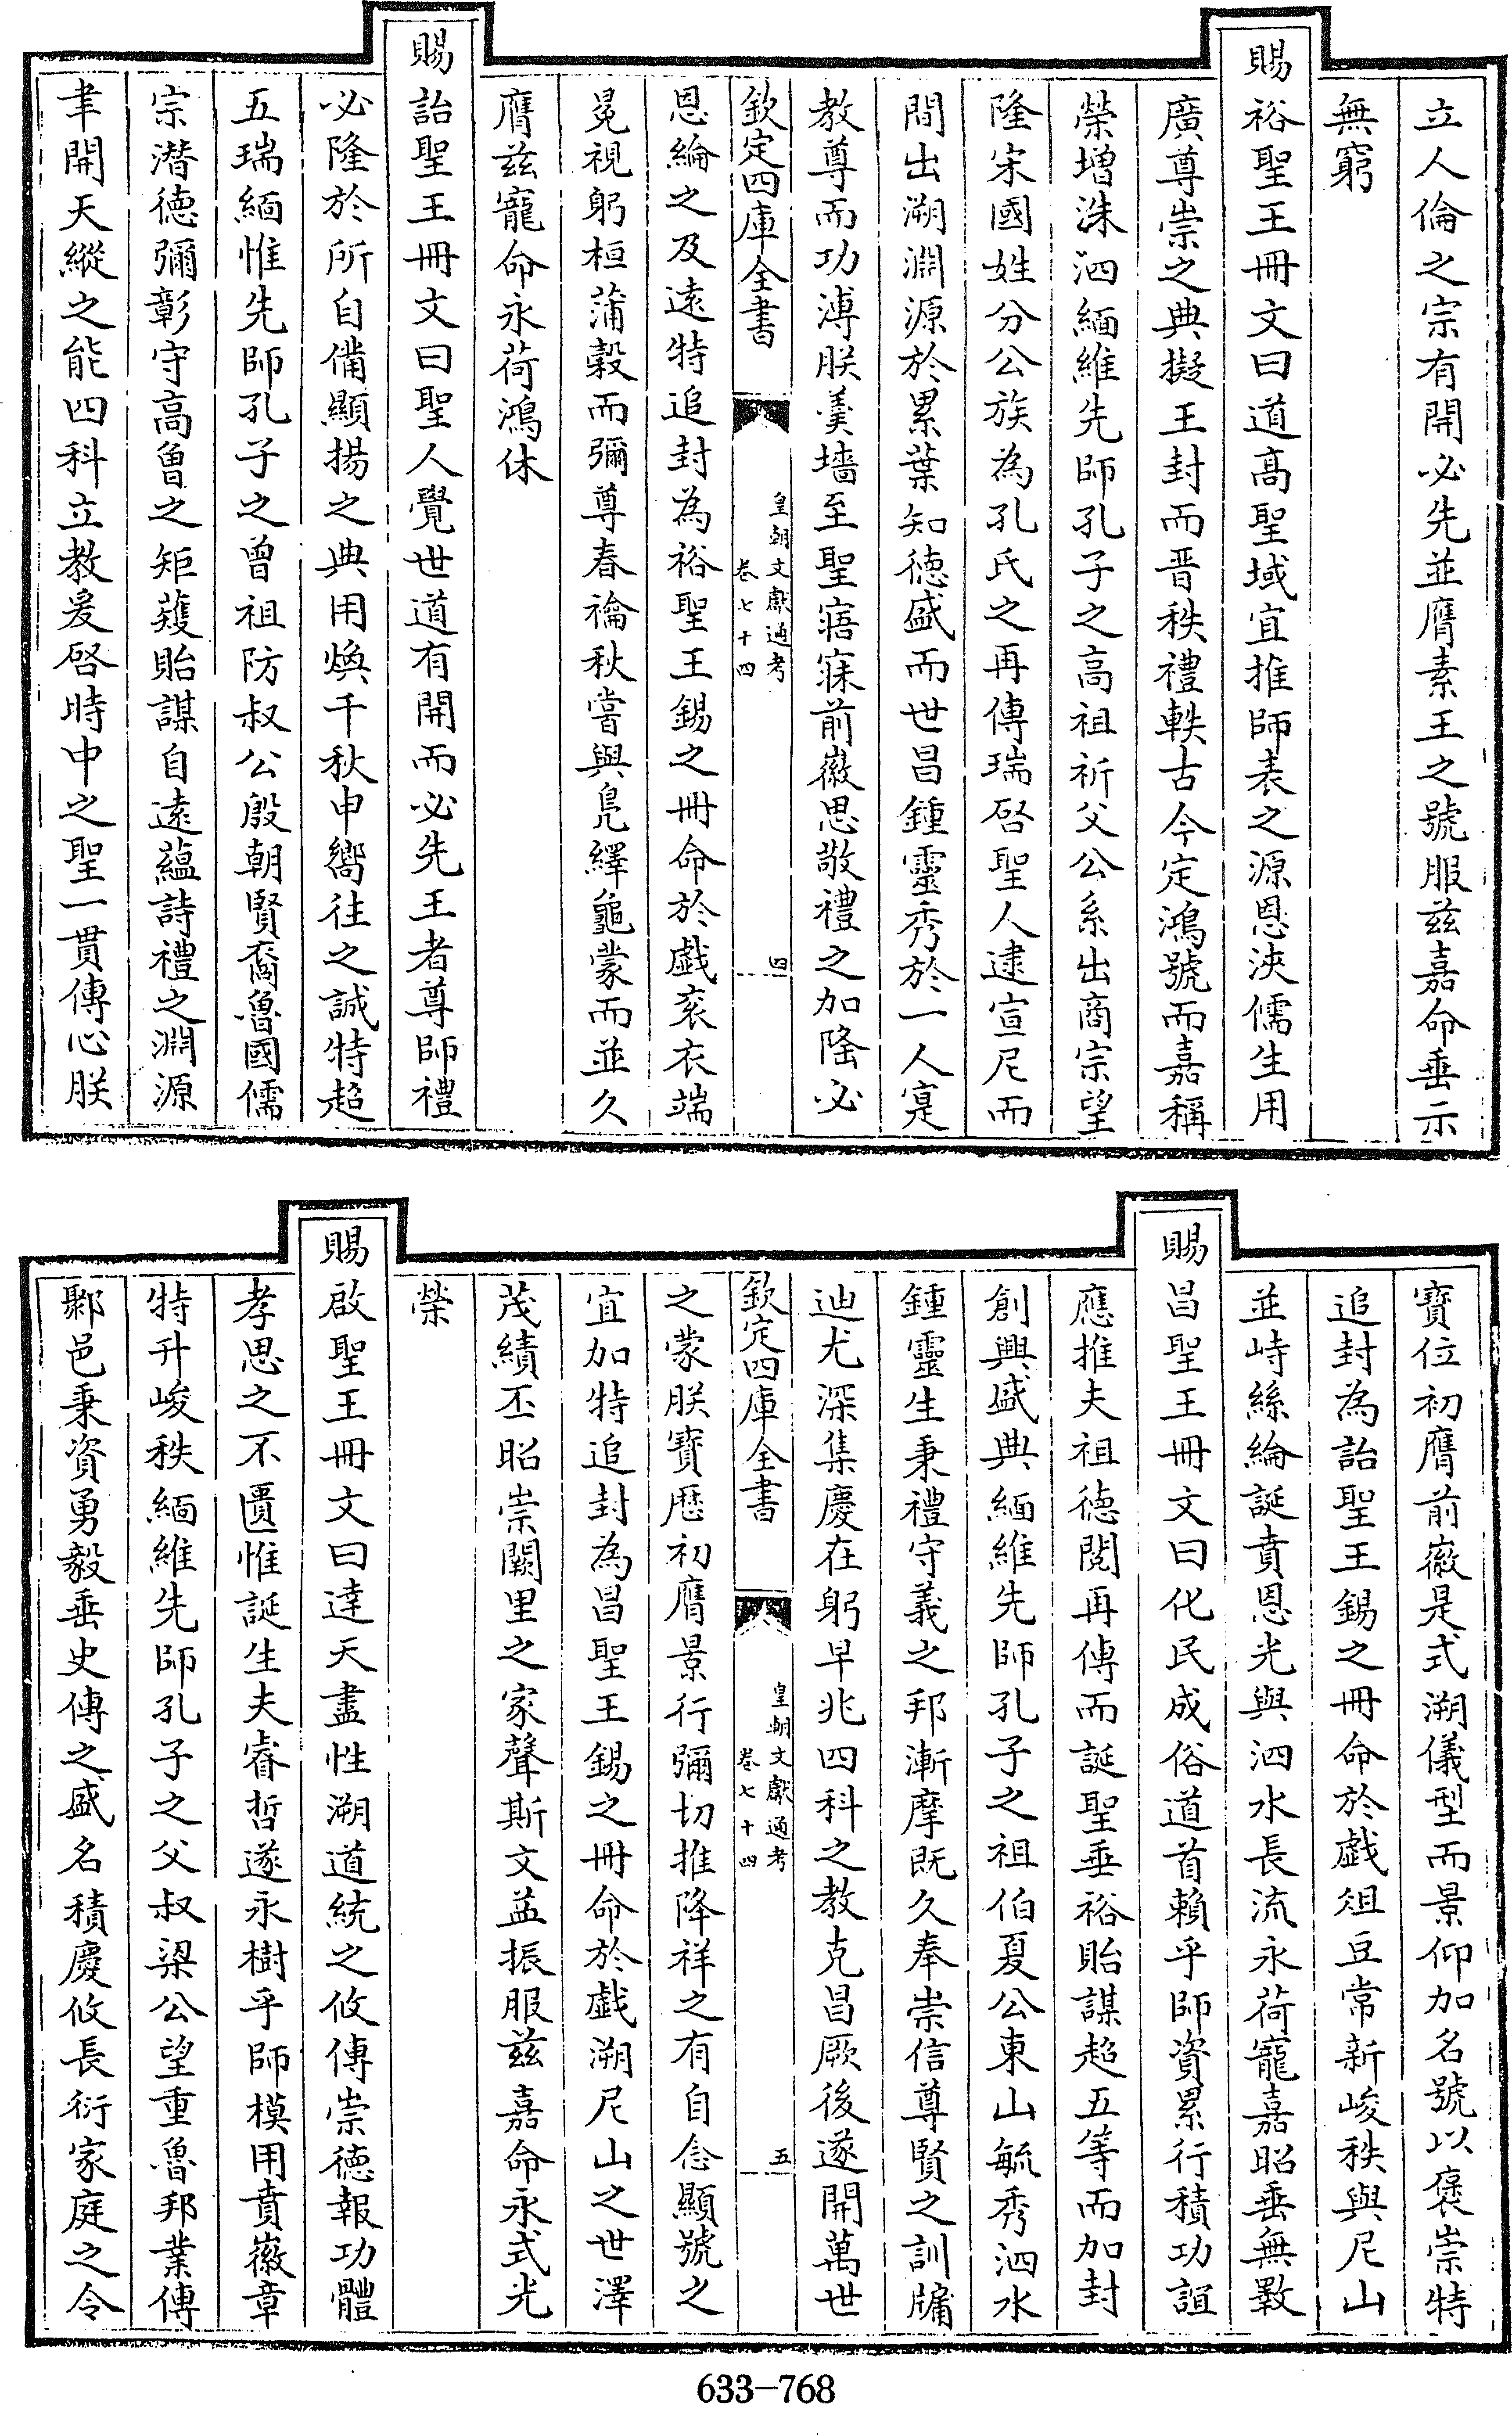 立人倫之宗有開必先並膺素王之號服兹嘉命垂示
無窮
賜裕聖王冊文曰道高聖域宜推師表之源恩浹儒生用
廣尊崇之典擬王封而晋秩禮軼古今定鴻號而嘉稱
榮增洙泗緬維先師孔子之高祖祈父公系出商宗望
隆宋國姓分公族為孔氏之再傳瑞啓聖人逮宣尼而
間出溯淵源於累葉知徳盛而世昌鍾靈秀於一人寔
教尊而功溥朕羹墻至聖寤寐前徽思敬禮之加隆必
欽定四庫全書
皇朝文獻通考
卷七十四
四
恩綸之及遠特追封為裕聖王錫之冊命於戲衮衣端
冕視躬桓蒲穀而彌尊春禴秋嘗與鳧繹龜蒙而並久
膺兹寵命永荷鴻休
賜詒聖王冊文曰聖人覺世道有開而必先王者尊師禮
必隆於所自備顯揚之典用煥千秋申嚮徃之誠特超
五瑞緬惟先師孔子之曾祖防叔公殷朝賢裔魯國儒
宗潜徳彌彰守高曾之矩蒦貽謀自遠蘊詩禮之淵源
聿開天縱之能四科立教爰啓時中之聖一貫傳心朕
寶位初膺前徽是式溯儀型而景仰加名號以褒崇特
追封為詒聖王錫之冊命於戲俎豆常新峻秩與尼山
並峙絲綸誕賁恩光與泗水長流永荷寵嘉昭垂無斁
賜昌聖王冊文曰化民成俗道首賴乎師資累行積功誼
應推夫祖徳閱再傳而誕聖垂裕貽謀超五等而加封
創興盛典緬維先師孔子之祖伯夏公東山毓秀泗水
鍾靈生秉禮守義之邦漸摩既久奉崇信尊賢之訓牖
迪尤深集慶在躬早兆四科之教克昌厥後遂開萬世
欽定四庫全書
皇朝文獻通考
卷七十四
五
之蒙朕寶歴初膺景行彌切推降祥之有自念顯號之
宜加特追封為昌聖王錫之冊命於戲溯尼山之世澤
茂績丕昭崇闕里之家聲斯文益振服兹嘉命永式光
榮
賜啟聖王冊文曰達天盡性溯道統之攸傳崇徳報功體
孝思之不匱惟誕生夫睿哲遂永樹乎師模用賁徽章
特升峻秩緬維先師孔子之父叔梁公望重魯邦業傳
鄹邑秉資勇毅垂史傳之盛名積慶攸長衍家庭之令
633-768